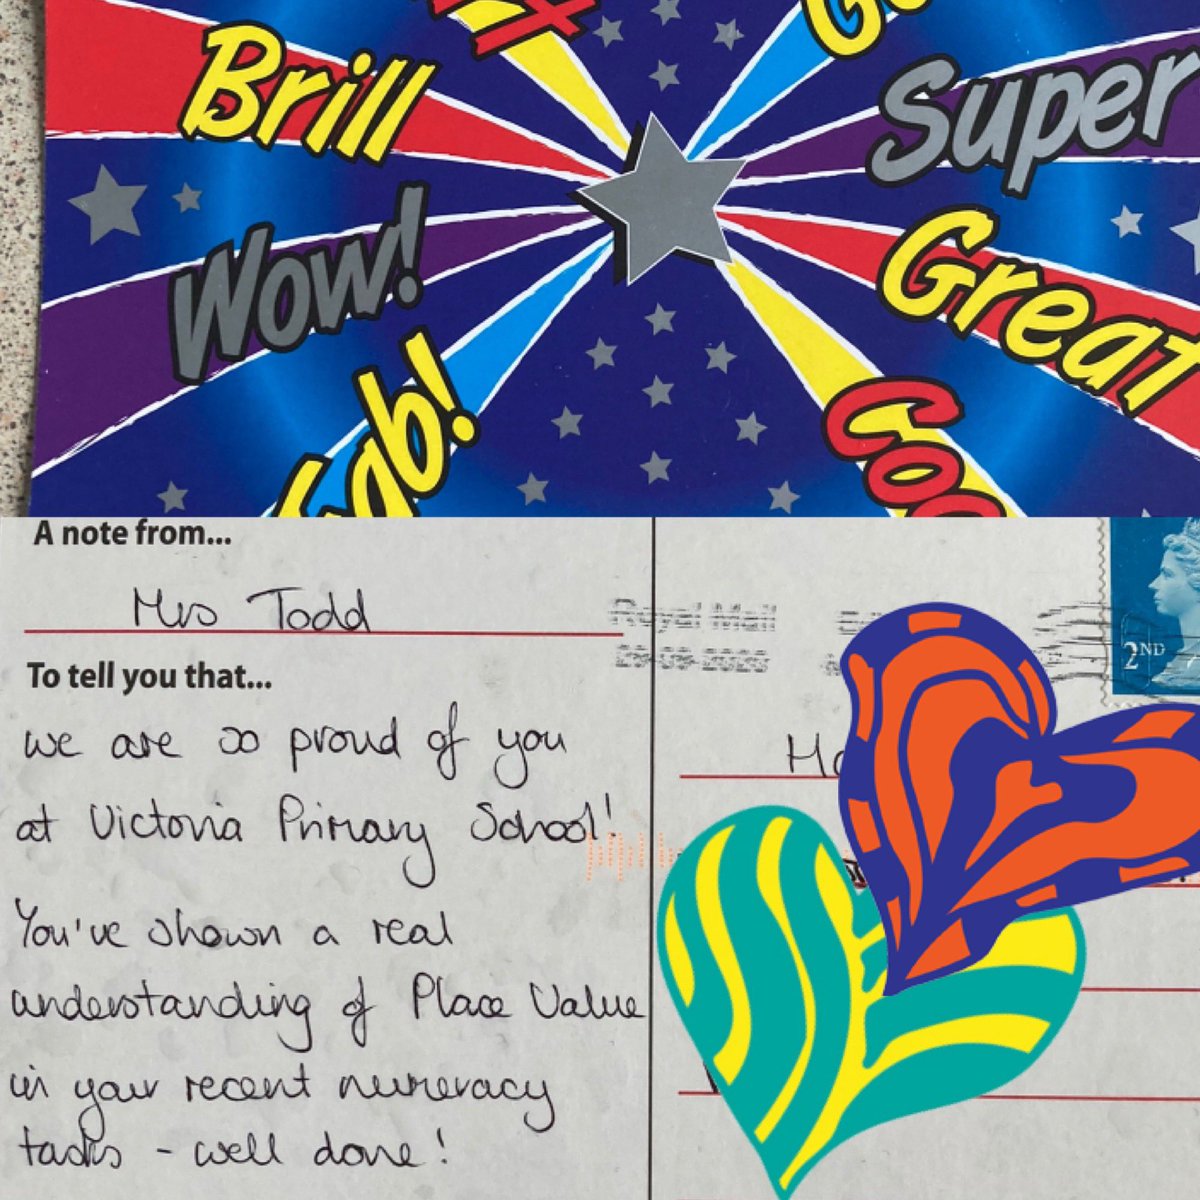 Brill
Super
Wow!
Great
Fab!
A note from...
Mrs Todd
Royal Mail
To tell you that...
2ND
we are so proud of you
at Victoria Primary School!
You've shown a real
understanding of Place Value
in your recent numeracy
tasks - well done!